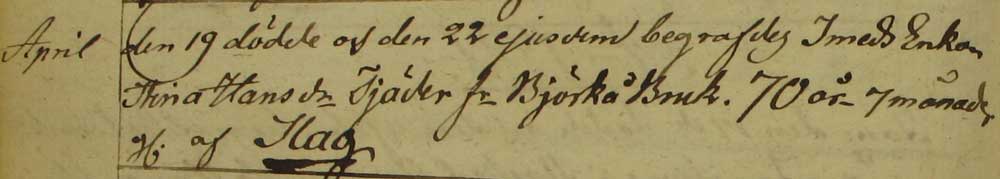 April den 19 dödde og den 22 ejusdem begrafdes Smeds Enkan
Stina Hansdr Tjäder fr Björkå Bruk. 70 år 7 månader
af Slag